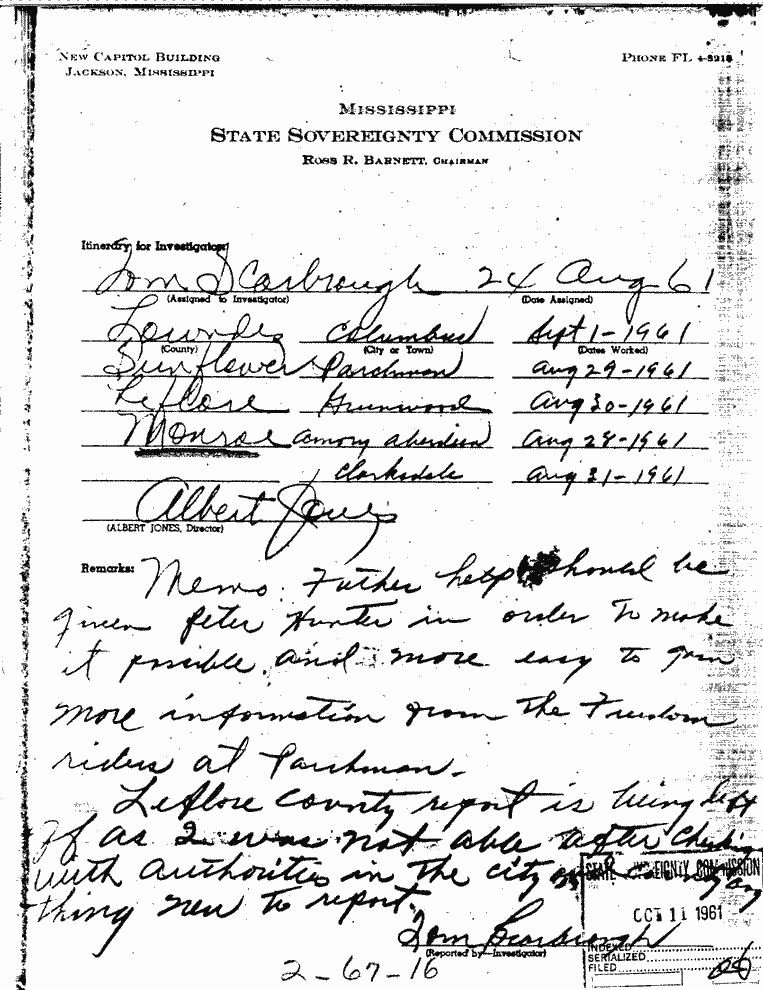 NEW CAPITOL BUILDING
JACKSON, MISSISSIPPI
PHONE FL 4-3218
MISSISSIPPI
STATE SOVEREIGNTY COMMISSION
ROSS R. BARNETT, CHAIRMAN
Itinerary for Investigator:
Tom Scarbrough 24 Aug 61
(Assigned to Investigator) (Date Assigned)
Lowndes Columbus Sept 1-1961
(County) (City or Town) (Dates Worked)
Sunflower Parchman Aug 29-1961
Leflore Greenwood Aug 30-1961
Monroe Amory Aberdeen Aug 28-1961
Clarksdale Aug 31-1961
Albert Jones
(ALBERT JONES, Director)
Remarks: Memo: Futher help should be
given Peter Hunter in order to make
it possible and more easy to gain
more information from the Freedom
riders at Parchman.
Leflore County report is being left
off as I was not able after checking
with authorities in the city any
thing new to report.
Tom Scarbrough
(Reported by—Investigator)
STATE SOVEREIGNTY COMMISSION
OCT 11 1961
INDEXED
SERIALIZED
FILED
2-67-16